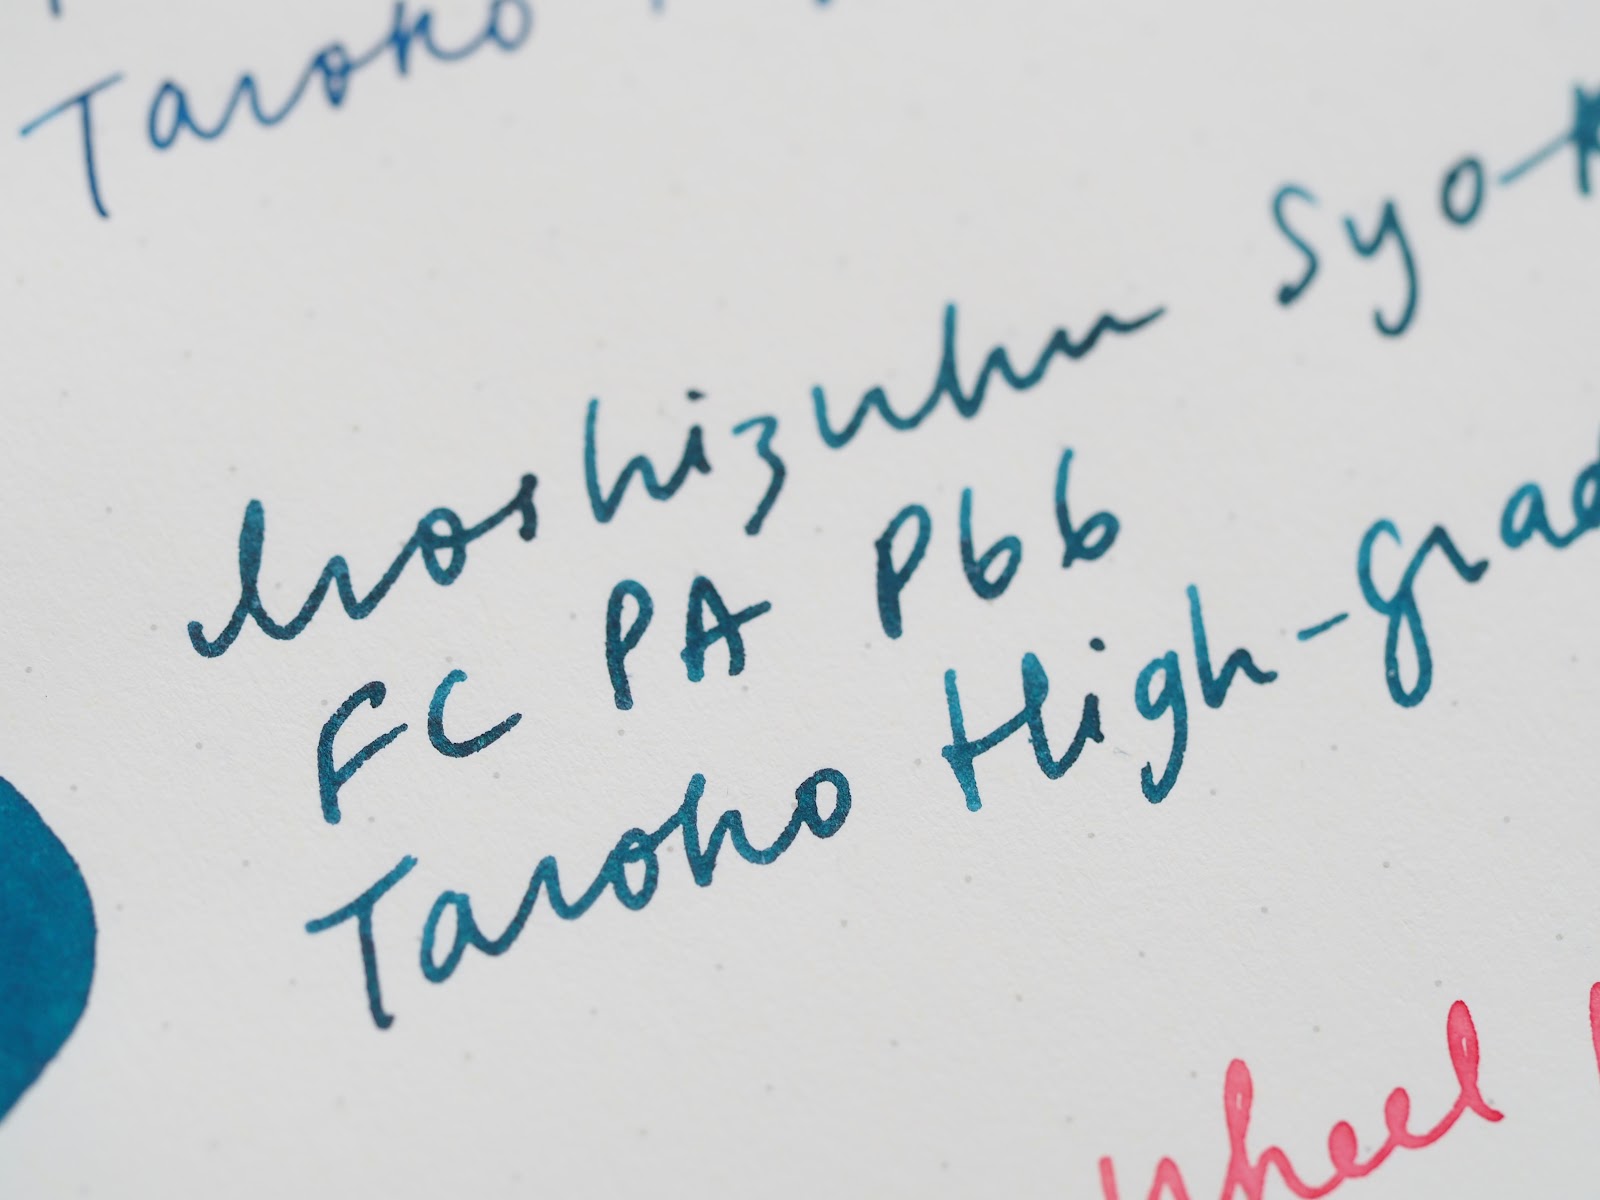 Taroko
Iroshizuku Syo-
FC PA P66
Taroko High-grad
wheel